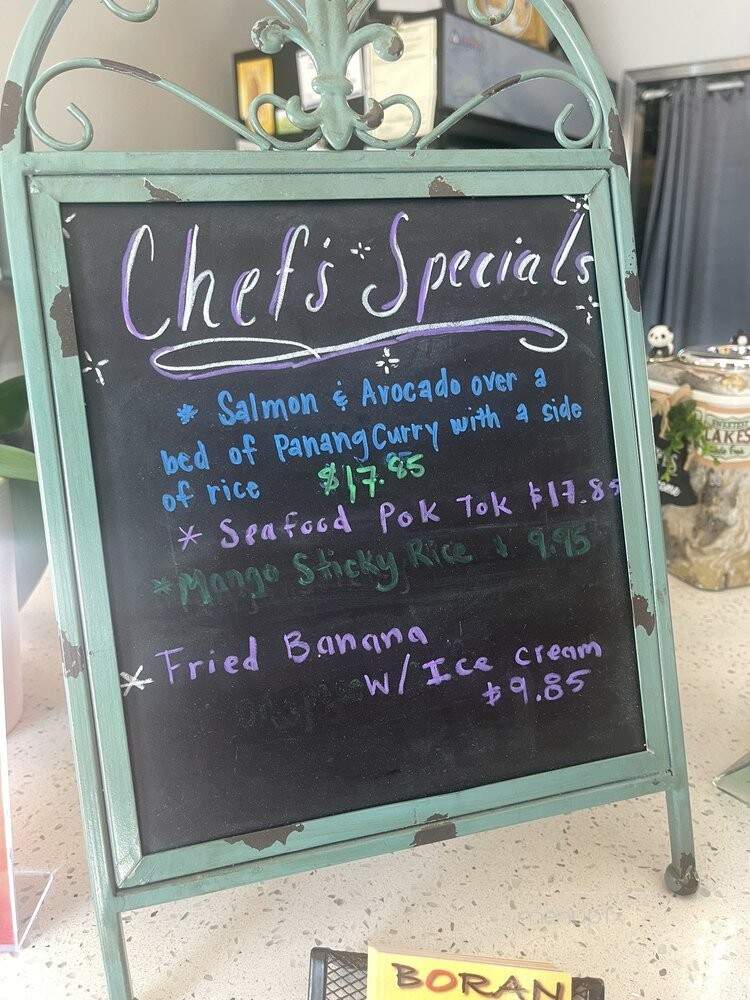 Chef's Specials
* Salmon & Avocado over a
bed of Panang Curry with a side
of rice $17.85
* Seafood Pok Tok $17.85
* Mango Sticky Rice $ 9.95
* Fried Banana
w/ Ice cream
$9.85
LAKES
BORAN